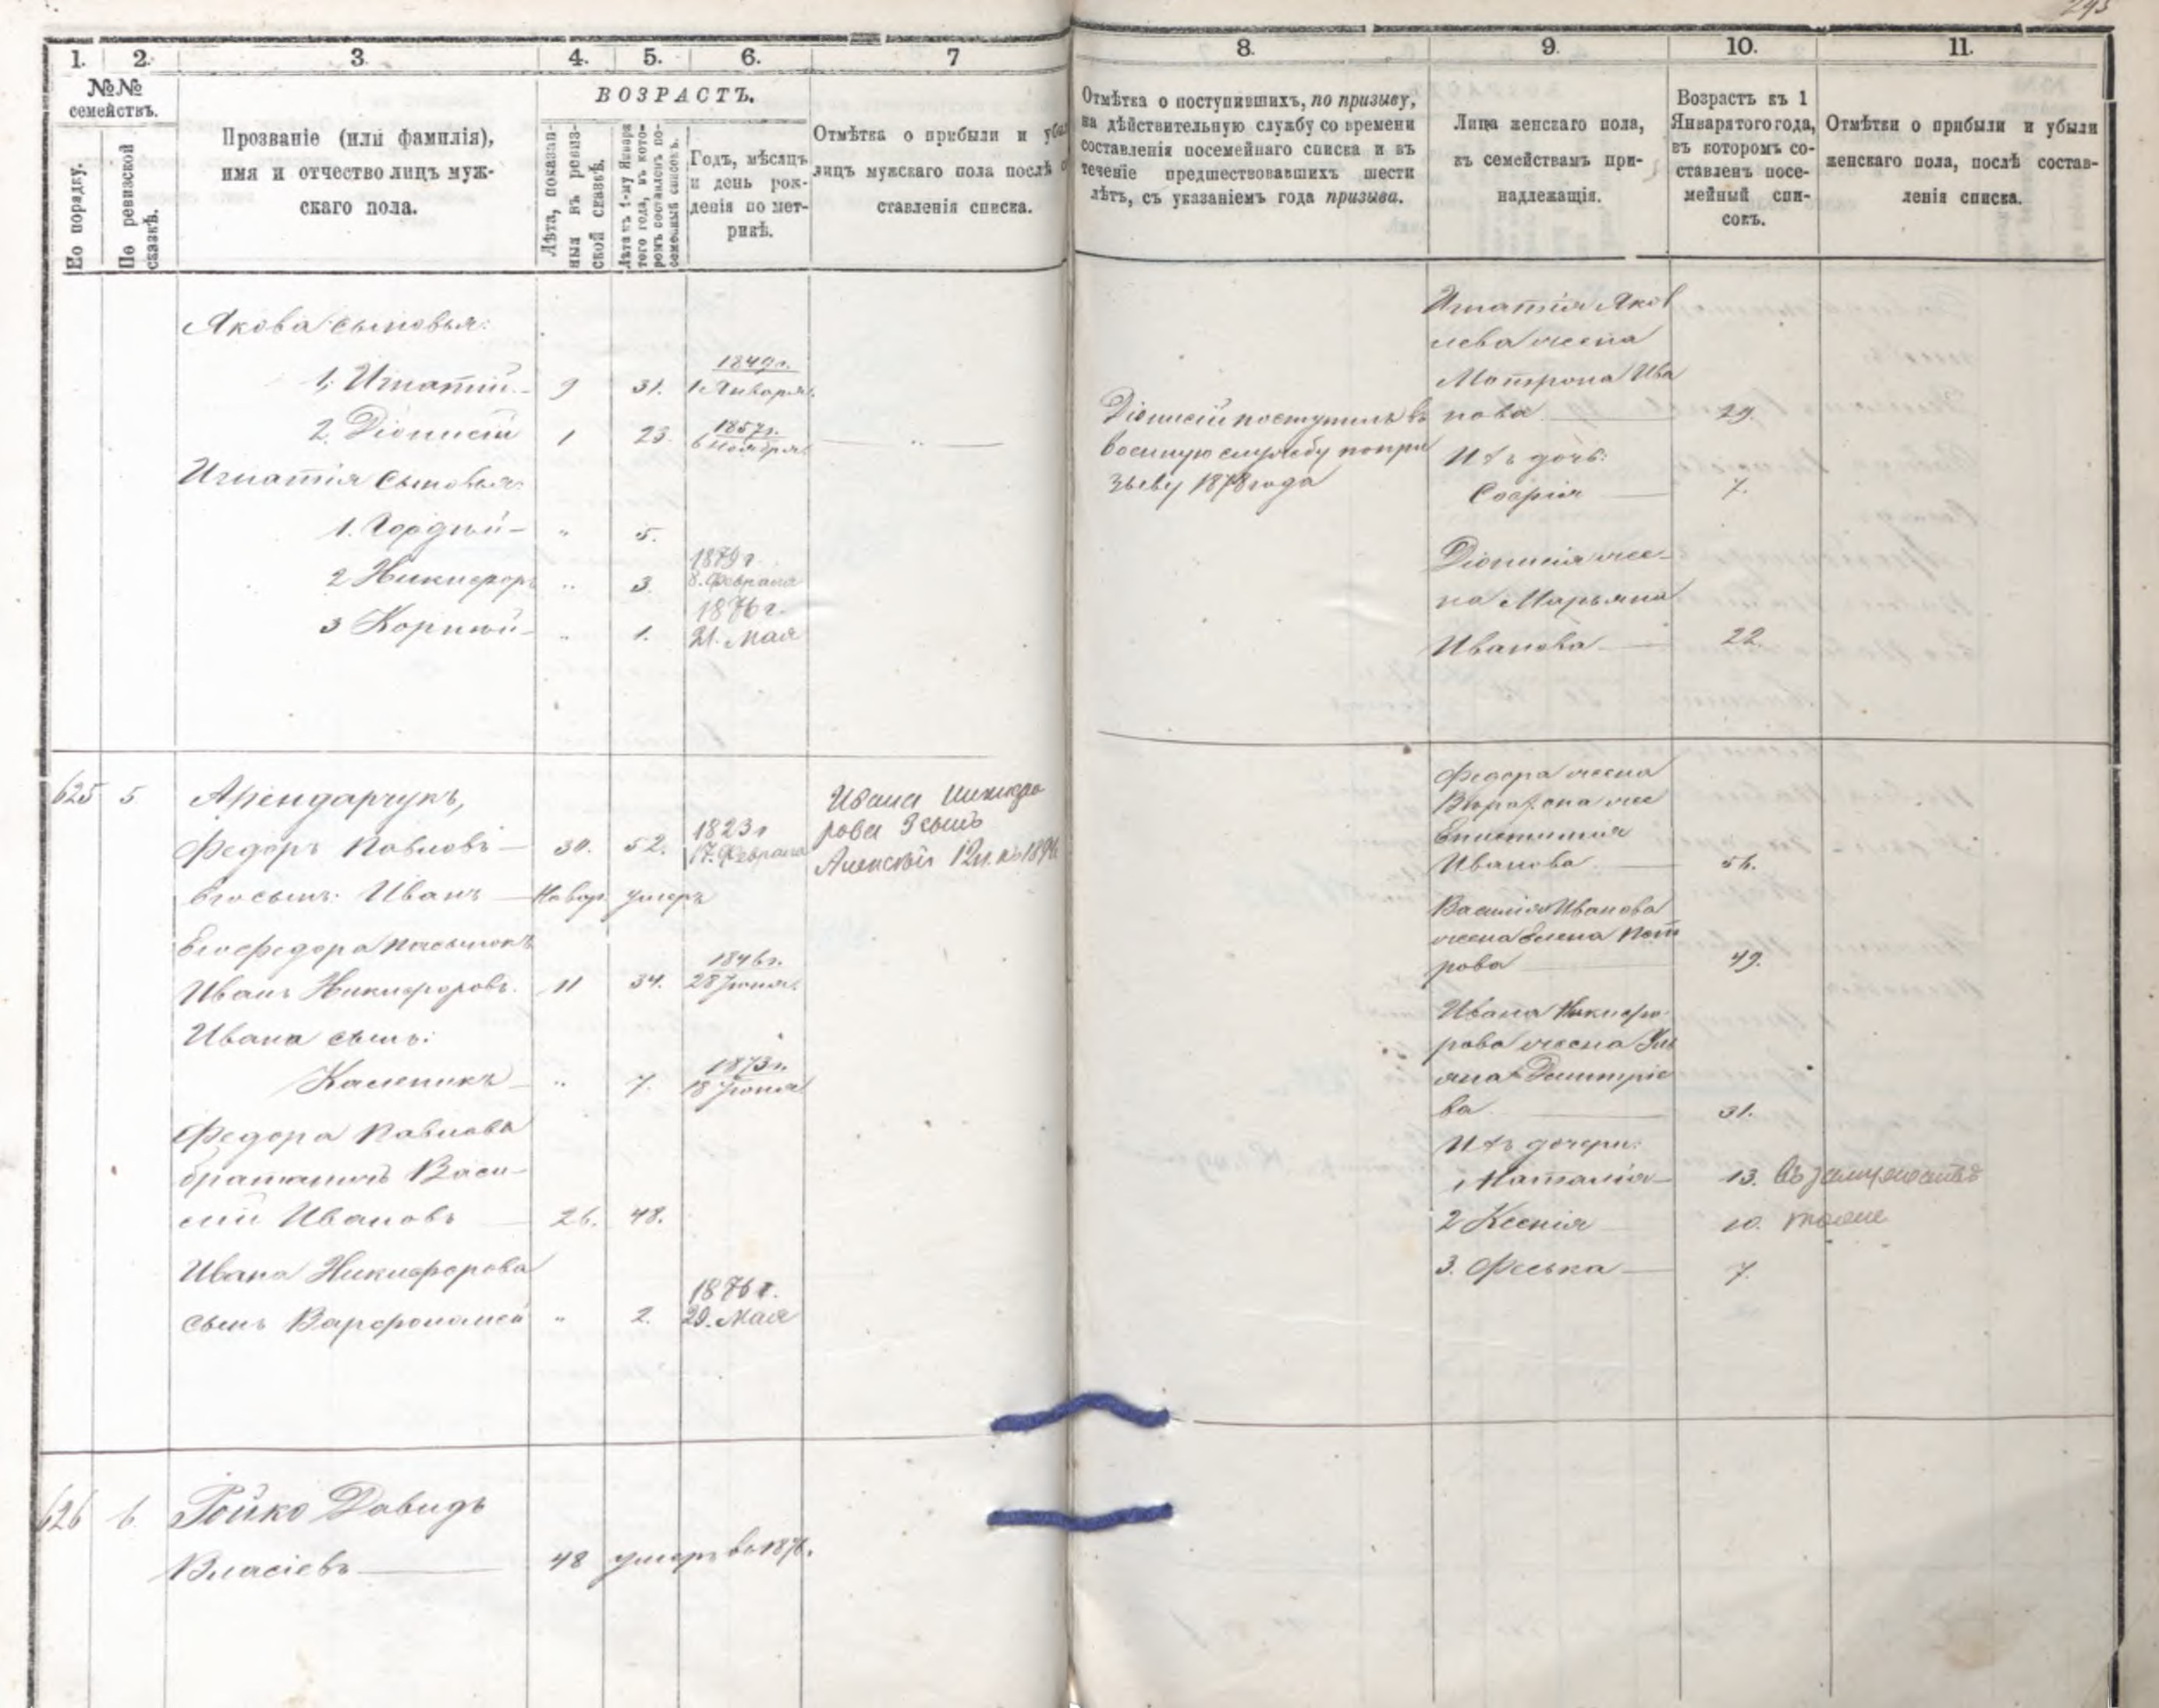 295
1. 2. 3. 4. 5. 6. 7
№№ семействъ.
По порядку.
По ревизской сказкѣ.
Прозваніе (или фамилія),
имя и отчество лицъ муж-
скаго пола.
ВОЗРАСТЪ.
Лѣта, показан-
ныя въ ревиз-
ской сказкѣ.
Лѣта къ 1-му Января
того года, въ кото-
ромъ составленъ по-
семейный списокъ.
Годъ, мѣсяцъ
и день рож-
денія по мет-
рикѣ.
Отмѣтка о прибыли и убыли
лицъ мужскаго пола послѣ со
ставленія списка.
Акова сыновья:
1. Игнатій 9 31. 1849 г. 1 Января
2. Діонисій 1 23. 1857 г. 6 Ноября „
Игнатія сыновья:
1. Гордѣй „ 5.
2 Никифоръ „ 3. 1879 г. 8. Февраля
3 Корнѣй „ 1. 1876 г. 21. Мая
625 5. Арендарчукъ,
Федоръ Павловъ 30. 52. 1823 г 17. Февраля
Ивана Никифо
рова 3 сынъ
Алексѣй 12 л. къ 189
Его сынъ: Иванъ Новор. умеръ
Его Федора пасынокъ
Иванъ Никифоровъ. 11 34. 1846 г. 28 Іюня
Ивана сынъ:
Каленикъ „ 7. 1873 г. 18 Іюня
Федора Павлова
братаничъ Васи-
лій Ивановъ 26. 48.
Ивана Никифорова
сынъ Варфоломей „ 2. 1876 г. 29. Мая
626 6. Гойко Давидъ
Власіевъ 48 умеръ въ 187
8. 9. 10. 11.
Отмѣтка о поступившихъ, по призыву,
на дѣйствительную службу со времени
составленія посемейнаго списка и въ
теченіе предшествовавшихъ шести
лѣтъ, съ указаніемъ года призыва.
Лица женскаго пола,
къ семействамъ при-
надлежащія.
Возрастъ къ 1
Января того года,
въ которомъ со-
ставленъ посе-
мейный спи-
сокъ.
Отмѣтки о прибыли и убыли
женскаго пола, послѣ состав-
ленія списка.
Діонисій поступилъ въ
военную службу по при
зыву 1878 года
Игнатія Яков
лева жена
Матрона Ива
нова 29.
Ихъ дочь:
Софія 7.
Діонисія же-
на Марьяна
Иванова 22.
Федора жена
Вторая она же
Епистимія
Иванова 56.
Василія Иванова
жена Елена Пет
рова 49.
Ивана Никифо-
рова жена Уль
яна Дмитріе
ва 31.
Ихъ дочери:
1 Наталія 13. въ замужествѣ
2 Ксенія 10. тоже
3. Феська 7.